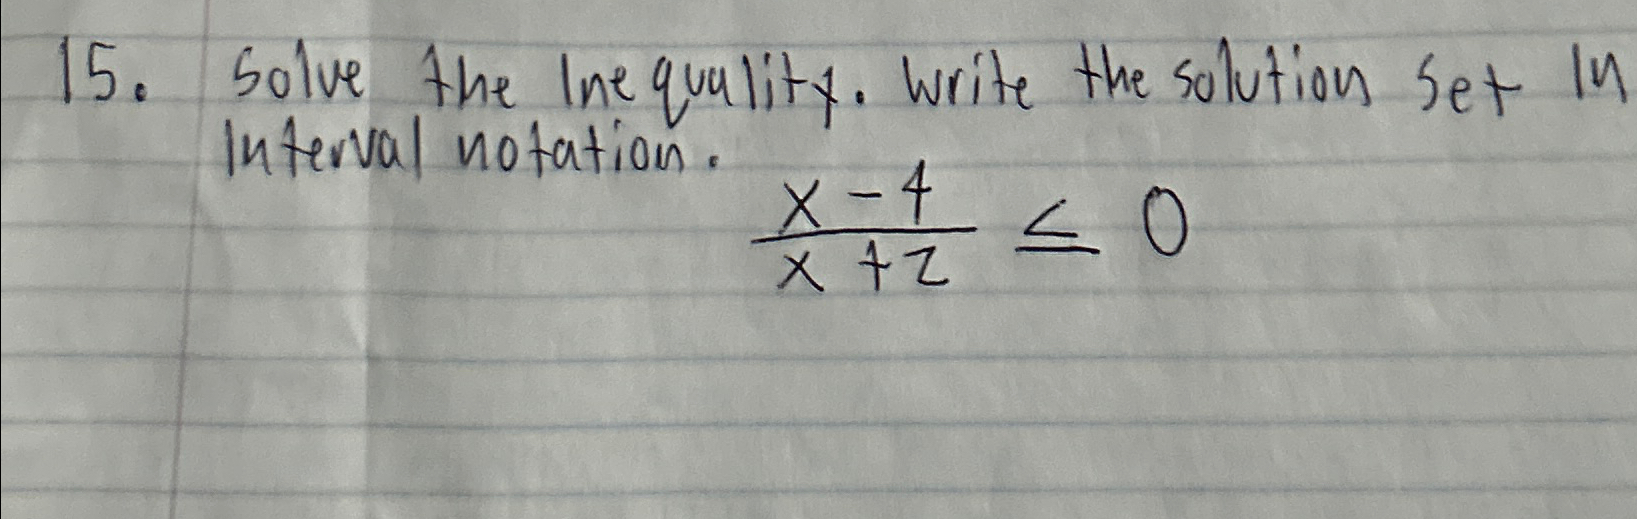 15. Solve the Inequality. Write the solution set In
Interval notation.
x - 4
x + 2 ≤ 0